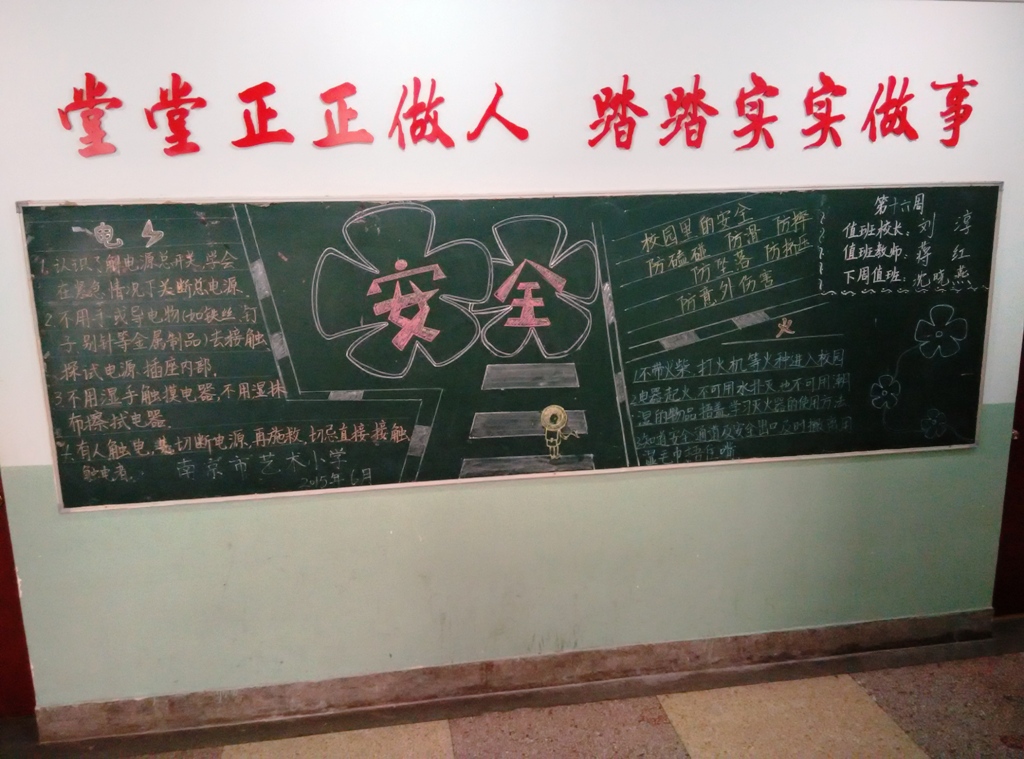 堂堂正正做人 踏踏实实做事
电
1.认识了解电源总开关,学会
在紧急情况下关断总电源.
2.不用手或导电物(如铁丝、钉
子别针等金属制品)去接触
探试电源插座内部.
3.不用湿手触摸电器,不用湿抹
布擦试电器
4.有人触电,要切断电源,再施救,切忌直接接触
触电者.
南京市艺术小学
2015年6月
安全
校园里的安全
防磕碰 防滑 防摔
防坠落 防挤压
防意外伤害
火
1.不带火柴、打火机等火种进入校园
电器起火,不可用水扑灭,也不可用潮
湿的物品捂盖,学习灭火器的使用方法
2.知道安全通道及安全出口
第十六周
值班校长:刘 淳
值班教师:蒋 红
下周值班:沈晓燕